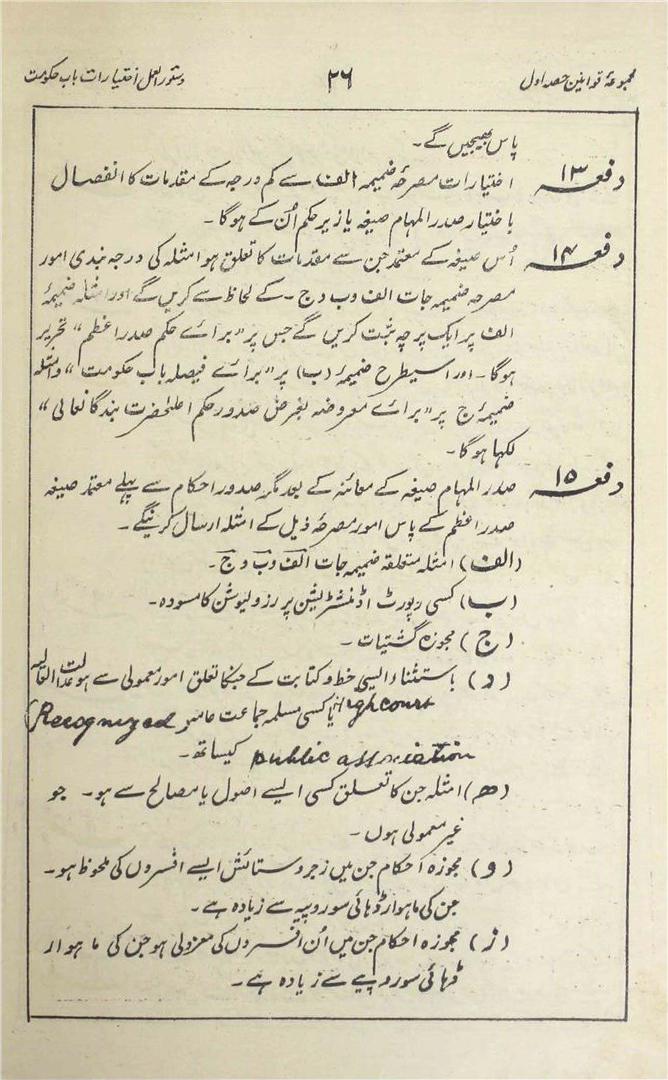 مجموعۂ قوانین حصہ اول
۲۶
دستور العمل اختیارات باب حکومت
پاس بھیجیں گے۔
دفعہ ۱۳ اختیارات مصرحہ ضمیمہ (الف) سے کم درجہ کے مقدمات کا انفصال
باختیار صدر المہام صیغہ یا زیر حکم اُن کے ہوگا۔
دفعہ ۱۴ اُس صیغہ کے معتمد جن سے مقدمات کا تعلق ہو امثلہ کی درجہ بندی امور
مصرحہ ضمیمہ جات الف و ب و ج۔ کے لحاظ سے کریں گے اور امثلہ ضمیمۂ
الف پر ایک پرچہ ثبت کریں گے جس پر "برائے حکم صدر اعظم" تحریر
ہوگا۔ اور اسیطرح ضمیمۂ (ب) پر "برائے فیصلہ باب حکومت" و امثلہ
ضمیمۂ ج پر "برائے معروضہ بغرض صدور حکم اعلحضرت بندگانعالی"
لکہا ہوگا۔
دفعہ ۱۵ صدر المہام صیغہ کے معائنہ کے بعد مگر صدور احکام سے پہلے معتمد صیغہ
صدر اعظم کے پاس امور مصرحۂ ذیل کے امثلہ ارسال کرینگے۔
(الف) امثلہ متعلقہ ضمیمہ جات الف و ب و ج۔
(ب) کسی رپورٹ اڈمنسٹریشن پر رزولیوشن کا مسودہ۔
(ج) مجوزہ گشتیات۔
(د) باستثناء ایسی خط و کتابت کے جسکا تعلق امور معمولی سے ہو عدالت العالیہ
Highcourt یا کسی مسلمہ جماعت عامہ (Recognized
public association کیساتھ۔
(ھ) امثلہ جن کا تعلق کسی ایسے اصول یا مصالح سے ہو۔ جو
غیر معمولی ہوں۔
(و) مجوزہ احکام جن میں زجر و ستائش ایسے افسروں کی ملحوظ ہو۔
جن کی ماہوار ڈہائی سو روپیہ سے زیادہ ہے۔
(ز) مجوزہ احکام جن میں اُن افسروں کی معزولی ہو جن کی ماہوار
ڈہائی سو روپیے سے زیادہ ہے۔